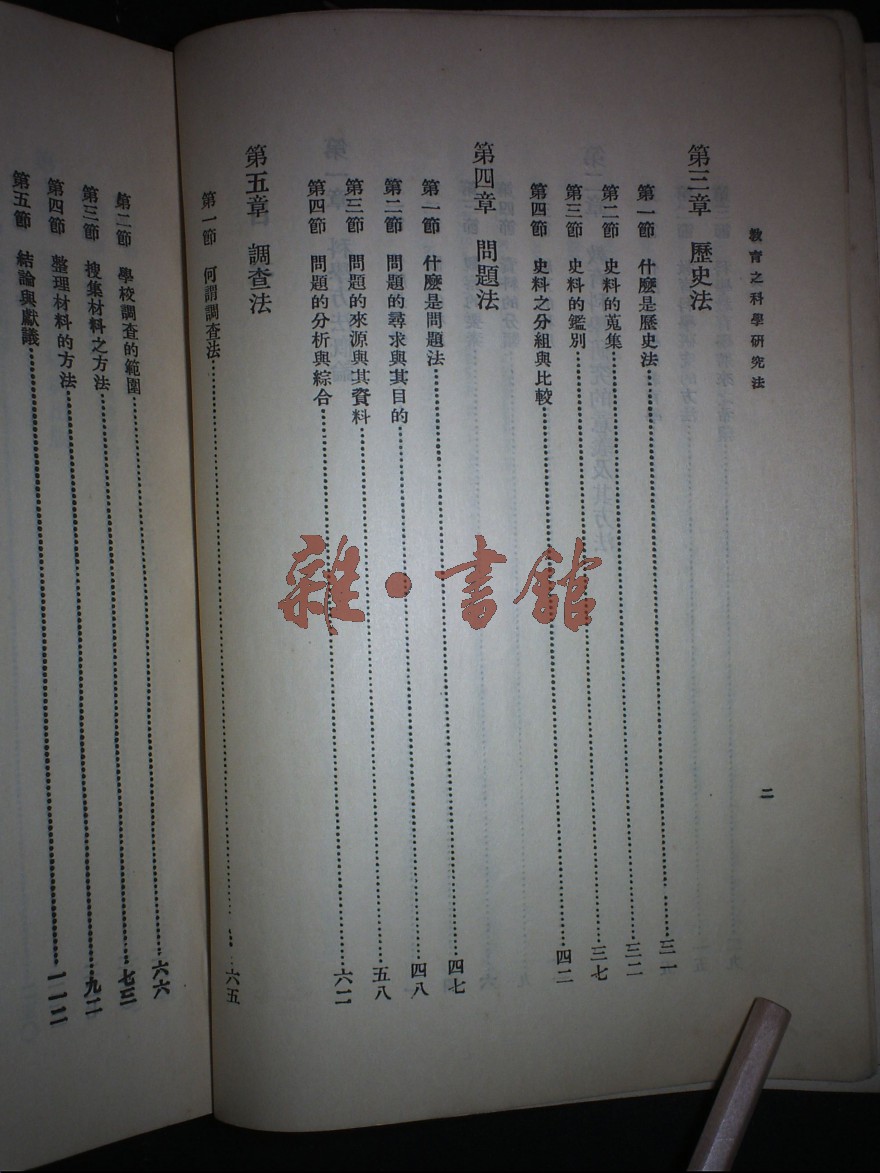 教育之科學研究法
二
第三章 歷史法
第一節 什麼是歷史法 三一
第二節 史料的蒐集 三二
第三節 史料的鑑別 三七
第四節 史料之分組與比較 四二
第四章 問題法
第一節 什麼是問題法 四七
第二節 問題的尋求與其目的 四八
第三節 問題的來源與其資料 五八
第四節 問題的分析與綜合 六二
第五章 調查法
第一節 何謂調查法 六五
第二節 學校調查的範圍 六六
第三節 搜集材料之方法 七三
第四節 整理材料的方法 九二
第五節 結論與獻議 一一二
雜·書館